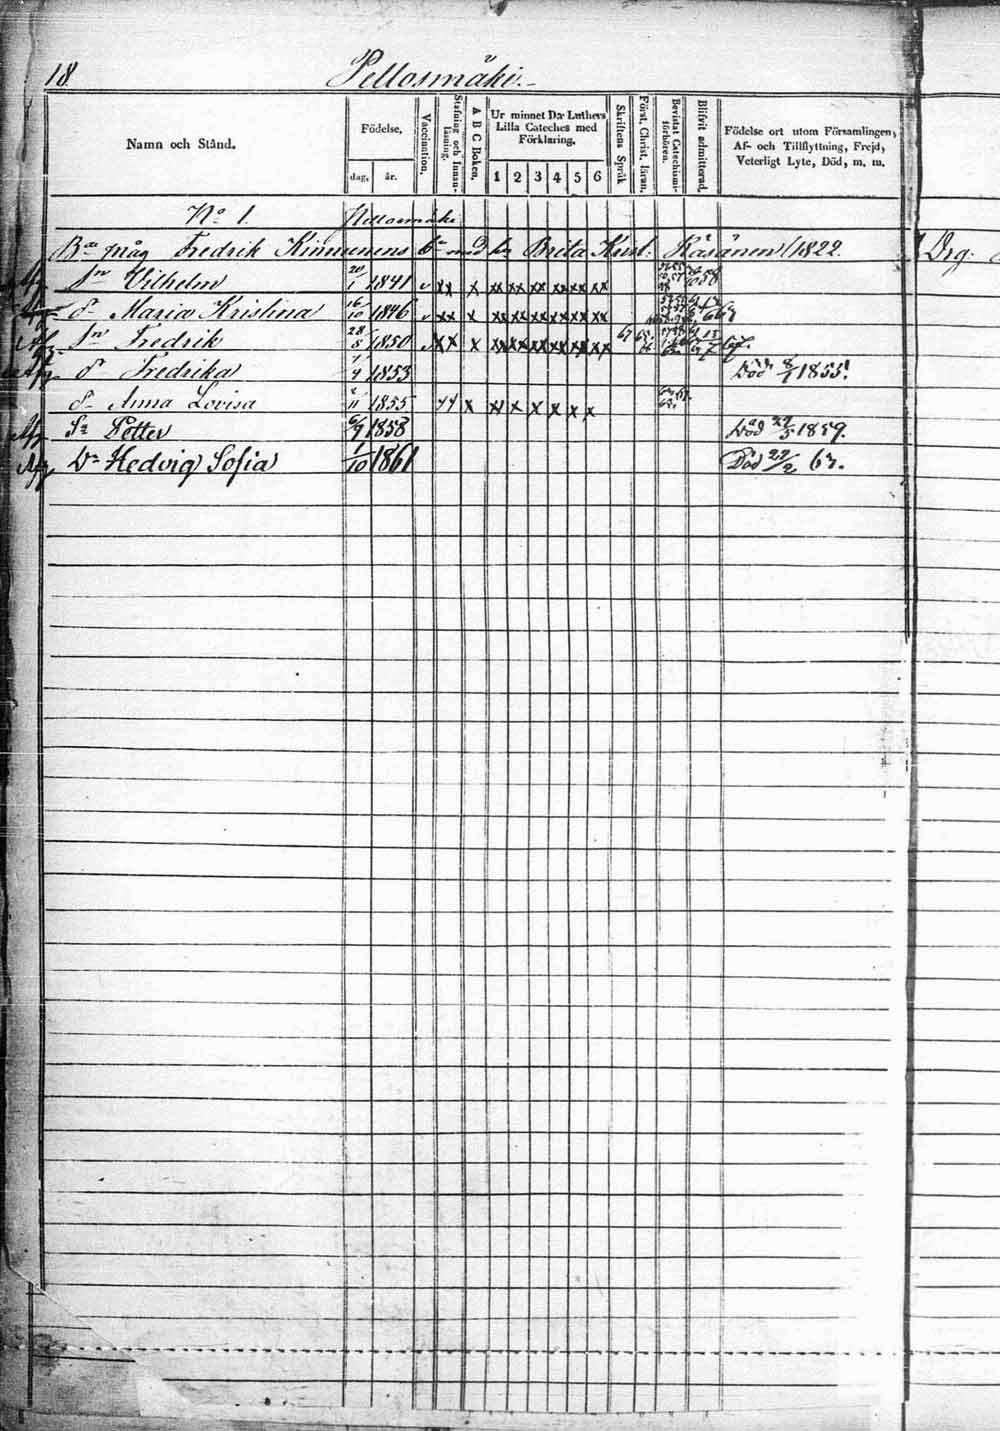 18.
Pellosmäki.
Namn och Stånd.
Födelse,
dag, år.
Vaccination,
Stafning och Innan-
läsning.
A B C Boken,
Ur minnet D:r Luthers
Lilla Cateches med
Förklaring,
1 2 3 4 5 6
Skriftens Språk
Först. Christ. läran,
Bevistat Catechismi-
förhören.
Blifvit admitterad,
Födelse ort utom Församlingen,
Af- och Tillflyttning, Frejd,
Veterligt Lyte, Död, m. m.
No 1. Pellosmäki
Fredrik Kinnunens Brita Krist: Räsänen 1822.
Vilhelm 20/1 1841 v xx x xx xx xx xx xx xx 58
Maria Kristina 16/10 1846 v xx x xx xx xx xx xx xx
Fredrik 28/8 1850 xx x xx xx xx xx xx xx 67
Fredrika 1/4 1853 Död 8/1 1855.
Anna Lovisa 2/11 1855 x x x x x x x
Petter 6/9 1858 Död 22/5 1859.
Hedvig Sofia 1/10 1861 Död 22/2 63.
Drg: